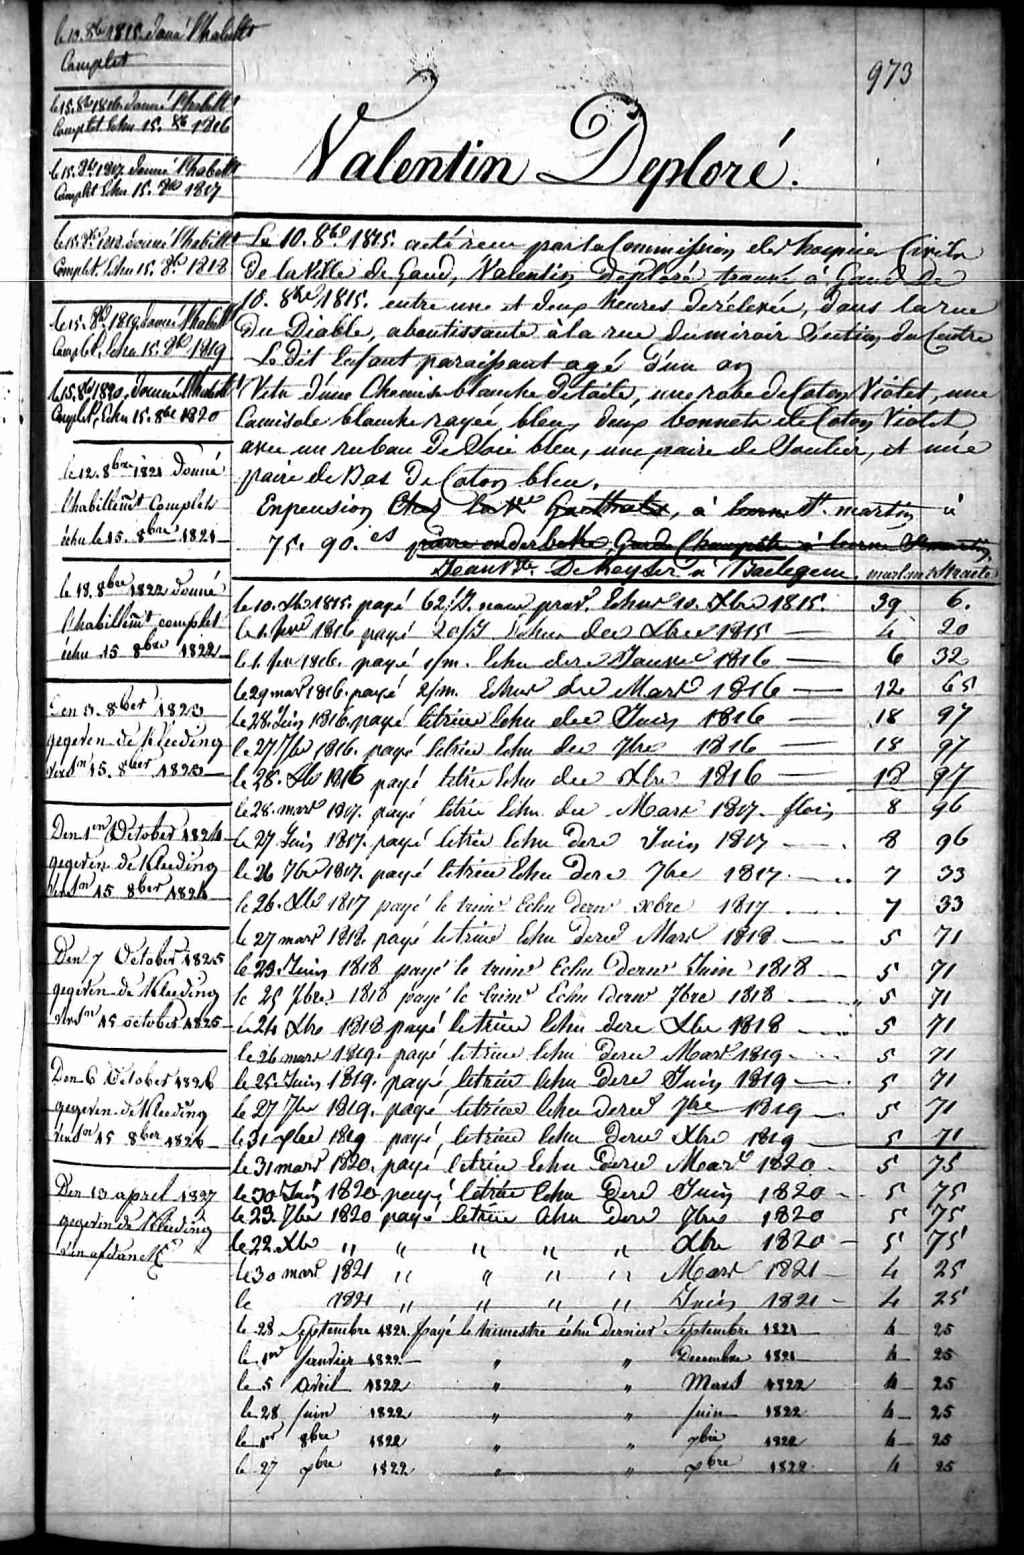 le 13. 8bre 1815. donné l'habillt
Complet
le 15. 8bre 1816. donné l'habillt
Complet Echu 15. 8bre 1816
le 15. 8bre 1817. donné l'habillt
Complet Echu 15. 8bre 1817
le 15. 8bre 1818. donné l'habillt
Complet. Echu 15. 8bre 1818
le 15. 8bre 1819. donné l'habillt
Complet. Echu 15. 8bre 1819
le 15. 8bre 1820. donné l'habillt
Complet, Echu 15. 8bre 1820
le 12. 8bre 1821 donné
l'habillemt Complet
échu le 15. 8bre 1821
le 13. 8bre 1822 donné
l'habillemt complet
échu 15 8bre 1822
Den 3. 8ber 1823
gegeven de Kleeding
15. 8ber 1823
Den 1en October 1824
gegeven de Kleeding
15 8ber 1824
Den 7 October 1825
gegeven de Kleeding
15 october 1825
Den 6 October 1826
gegeven de Kleeding
15 8ber 1826
Den 13 april 1827
gegeven de Kleeding
973
Valentin Deploré.
Le 10. 8bre 1815. acté reçu par la Commission des hospices Civils
De la Ville de Gand, Valentin Deploré, trouvé à Gand le
10. 8bre 1815. entre une et deux heures de rélevée, dans la rue
du Diable, aboutissante à la rue du miroir Section du Centre
Le Dit Enfant paraissant agé d'un an
Vetu d'une Chemise blanche de toile, une robe de Coton Violet, une
Camisole blanche rayée, bleu, deux bonnets de Coton Violet
avec un ruban De Soie bleu, une paire de Souliers, et une
paire de Bas De Coton bleu.
En pension Chez la Ve, à St. martin à
75. 90. cs Garde Champetre à
Jean Bte. De Keyser à Baelegem
le 10. Xbre 1815. payé 62/J. Echus 10. Xbre 1815. 39 6.
le 1. Janvr 1816 payé 20/J Echus der Xbre 1815 4 20
le 1. fevr 1816. payé 1/m. Echu der Janvr 1816 6 32
le 29 mars 1816. payé 2/m. Echus der Mars 1816 12 65
le 28. Juin 1816. payé le trim Echu der Juin 1816 18 97
le 27 7bre 1816. payé le trim Echu der 7bre 1816 18 97
le 28. Xbre 1816 payé le trim Echu der Xbre 1816 18 97
le 28. mars 1817. payé le trim Echu der Mars 1817. flois 8 96
le 27 Juin 1817. payé le trim Echu der Juin 1817 8 96
le 26 7bre 1817. payé le trim Echu der 7bre 1817 7 33
le 26. Xbre 1817 payé le trimr Echu dernr xbre 1817 7 33
le 27 mars 1818. payé le trim Echu der Mars 1818 5 71
le 29. Juin 1818 payé le trimr Echu dernr Juin 1818 5 71
le 25 7bre 1818 payé le trimr Echu dernr 7bre 1818 5 71
le 24 Xbre 1818 payé le trim Echu der Xbre 1818 5 71
le 26 mars 1819. payé le trim Echu der Mars 1819 5 71
le 25. Juin 1819. payé le trim Echu der Juin 1819 5 71
le 27 7bre 1819. payé le trim Echu der 7bre 1819 5 71
le 31 xbre 1819 payé, le trim Echu der Xbre 1819 5 71
le 31 mars 1820. payé le trim Echu der Mars 1820 5 75
le 30 Juin 1820 payé le trim Echu der Juin 1820 5 75
le 29. 7bre 1820 payé le trim Echu der 7bre 1820 5 75
le 22. Xbre " " " " " Xbre 1820 5 75
le 30 mars 1821 " " " " Mars 1821 4 25
le 1821 " " " " Juin 1821 4 25
le 28 Septembre 1821. payé le trimestre échu dernier Septembre 1821 4 25
le 1er Janvier 1822 " " Decembre 1821 4 25
le 5 Avril 1822 " " Mars 1822 4 25
le 28 Juin 1822 " " Juin 1822 4 25
le 1er 8bre 1822 " " 7bre 1822 4 25
le 27 xbre 1822 " " xbre 1822 4 25